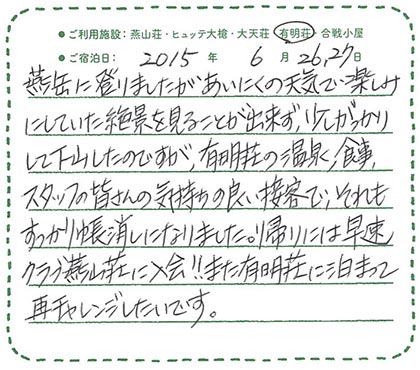 ●ご利用施設：燕山荘・ヒュッテ大槍・大天荘・有明荘・合戦小屋
●ご宿泊日：2015年 6月26,27日
燕岳に登りましたがあいにくの天気で楽しみ
にしていた絶景を見ることが出来ず、少しがっかり
して下山したのですが、有明荘の温泉、食事、
スタッフの皆さんの気持ちの良い接客で、それも
すっかり帳消しになりました。帰りには早速
クラブ燕山荘に入会!!また有明荘に泊まって
再チャレンジしたいです。